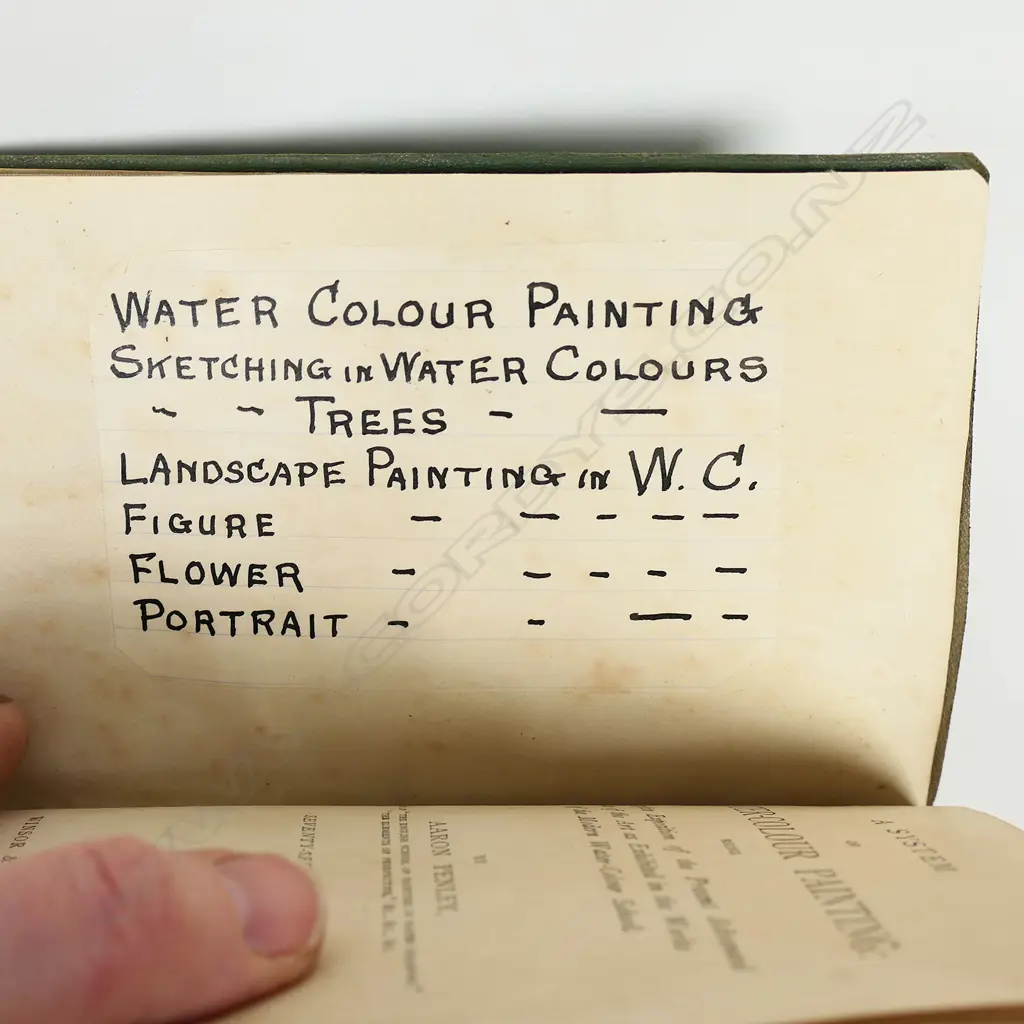 WATER COLOUR PAINTING
SKETCHING IN WATER COLOURS
~ ~ TREES - —
LANDSCAPE PAINTING IN W. C.
FIGURE - — - — —
FLOWER - - - - —
PORTRAIT - - — -
A SYSTEM
OF
COLOUR PAINTING
of the Present Advancement
of the Art as Exhibited in the Works
of the Modern Water-Colour School.
BY
AARON PENLEY,
WINSOR &
CORDYS.CO.NZ